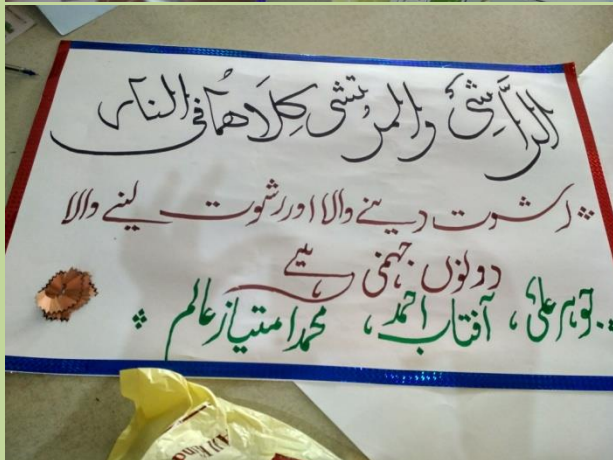 الرَّاشِیْ والمرتشی کِلَاھُمَافی النار
رشوت دینے والا اور رشوت لینے والا
دونوں جہنمی ہیے
گوہر علی، آفتاب احمد، محمد امتیاز عالم
All Kind